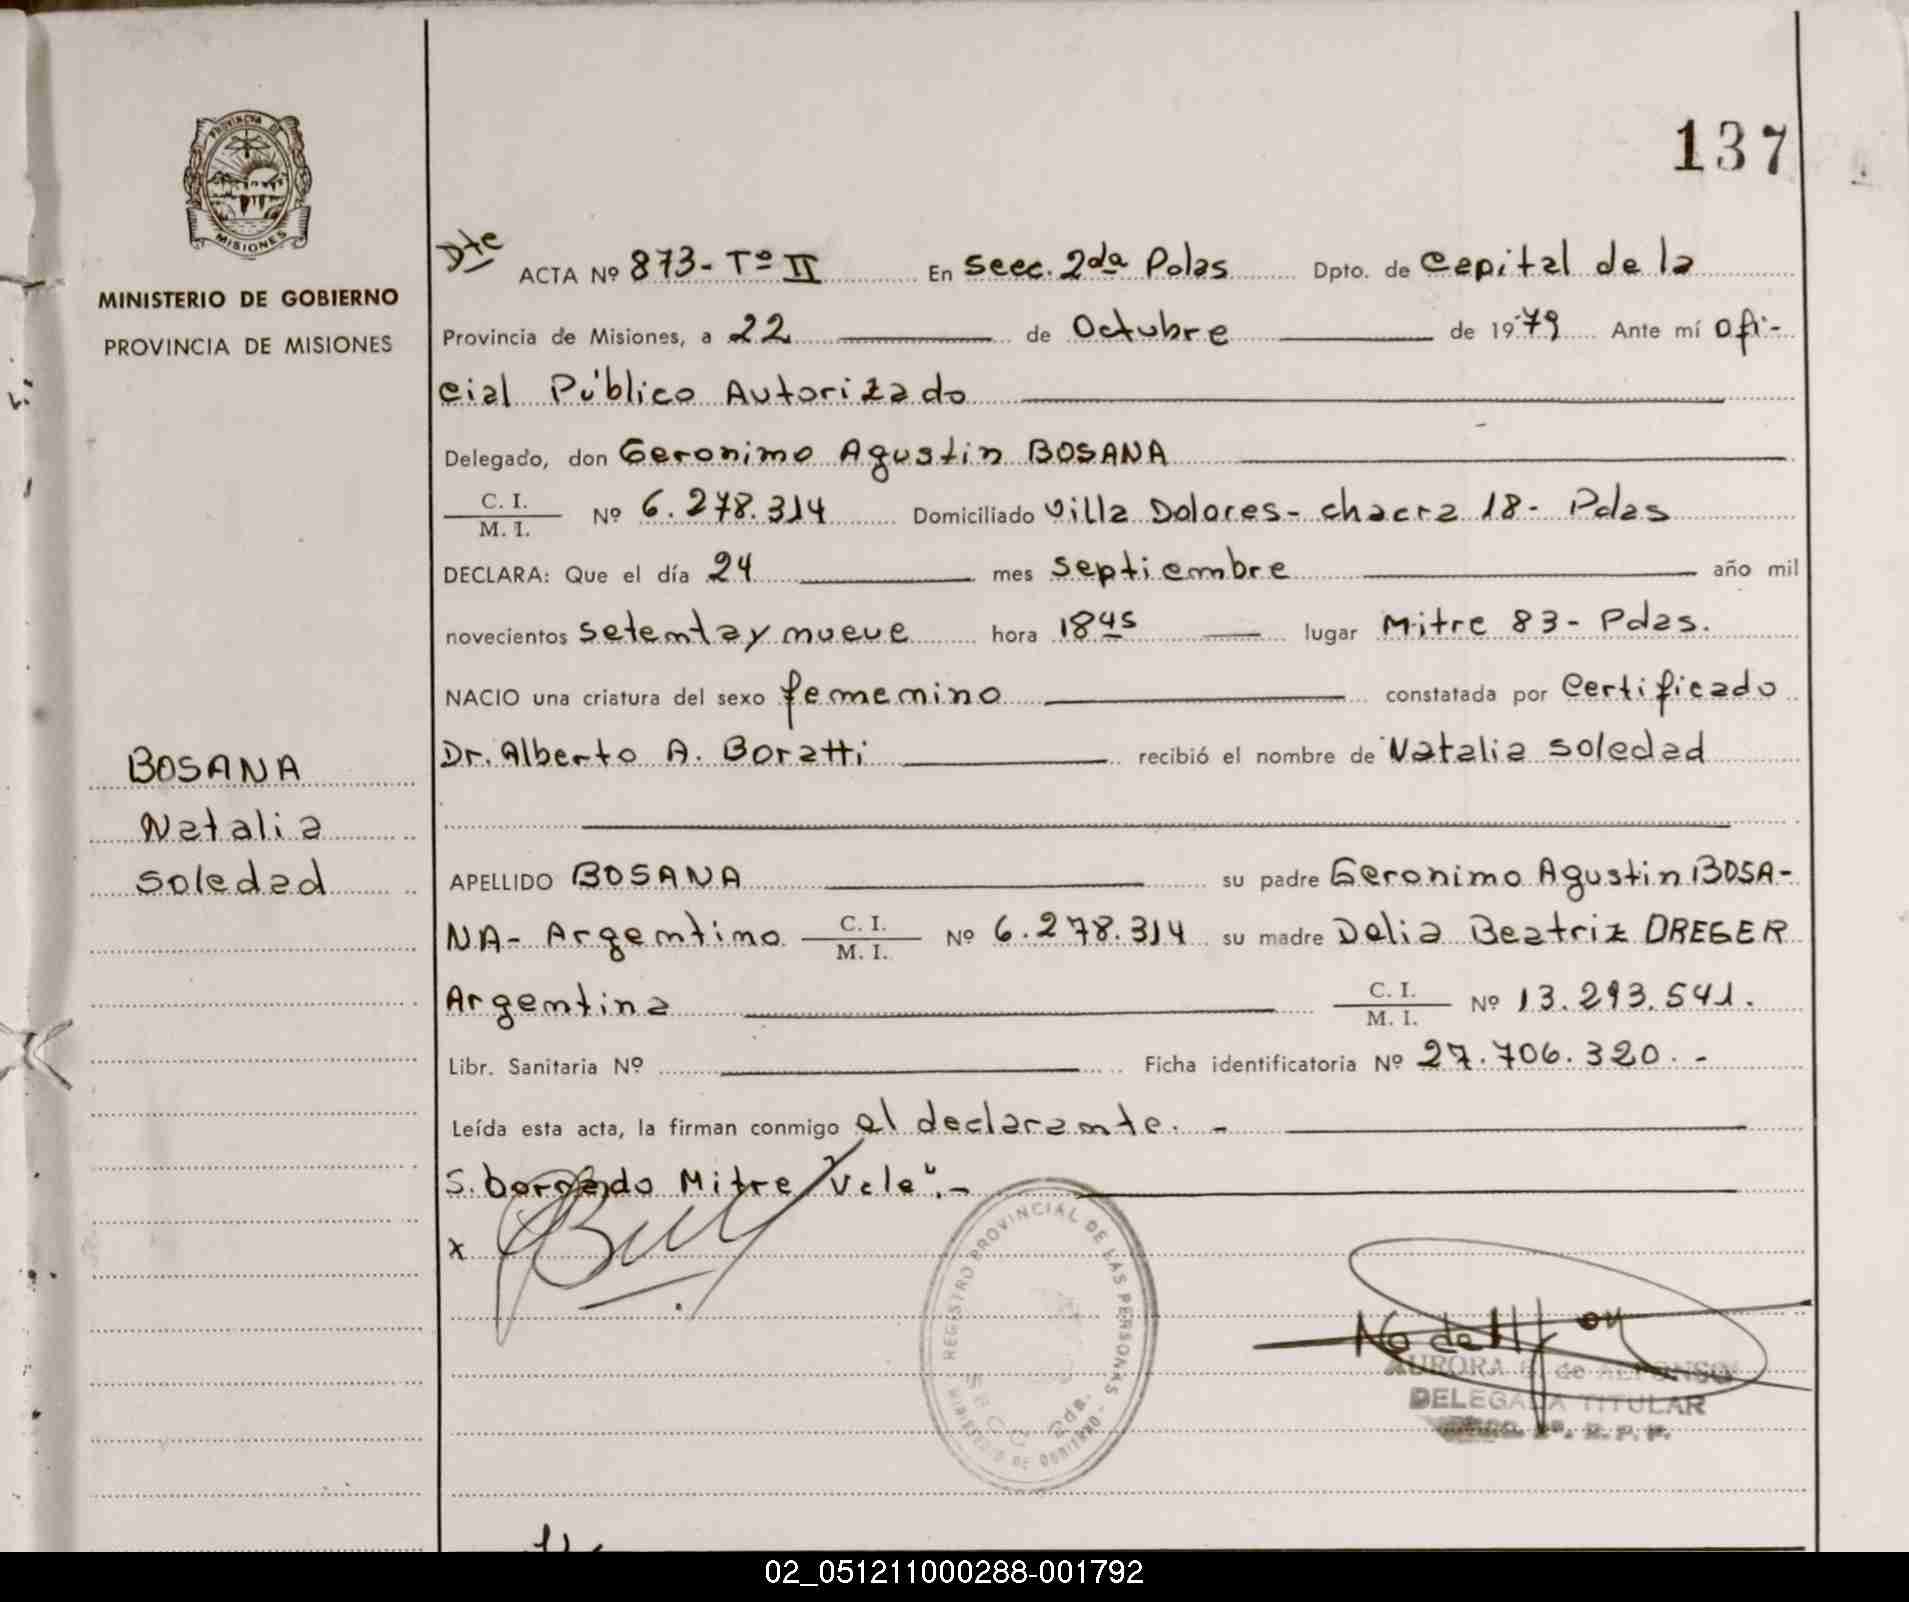 137
PROVINCIA DE
MISIONES
MINISTERIO DE GOBIERNO
PROVINCIA DE MISIONES
Dte
ACTA Nº 873- Tº II En Secc. 2da Pdas Dpto. de Capital de la
Provincia de Misiones, a 22 de Octubre de 1979 Ante mí ofi-
cial Público Autorizado
Delegado, don Geronimo Agustin BOSANA
C. I.
M. I. Nº 6.278.314 Domiciliado Villa Dolores- chacra 18- Pdas
DECLARA: Que el día 24 mes septiembre año mil
novecientos setenta y nueve hora 18 45 lugar Mitre 83- Pdas.
NACIO una criatura del sexo femenino constatada por Certificado
Dr. Alberto A. Boratti recibió el nombre de Natalia Soledad
BOSANA
Natalia
Soledad
APELLIDO BOSANA su padre Geronimo Agustin BOSA-
NA- Argentino C. I.
M. I. Nº 6.278.314 su madre Delia Beatriz DREGER
Argentina C. I.
M. I. Nº 13.293.541.
Libr. Sanitaria Nº Ficha identificatoria Nº 27.706.320.-
Leída esta acta, la firman conmigo el declarante.-
S. borgado Mitre "Vale".-
x
REGISTRO PROVINCIAL DE LAS PERSONAS
MINISTERIO DE GOBIERNO
SECC 2da.
AURORA de ALFONSO
DELEGADA TITULAR
R.P.P.
02_051211000288-001792